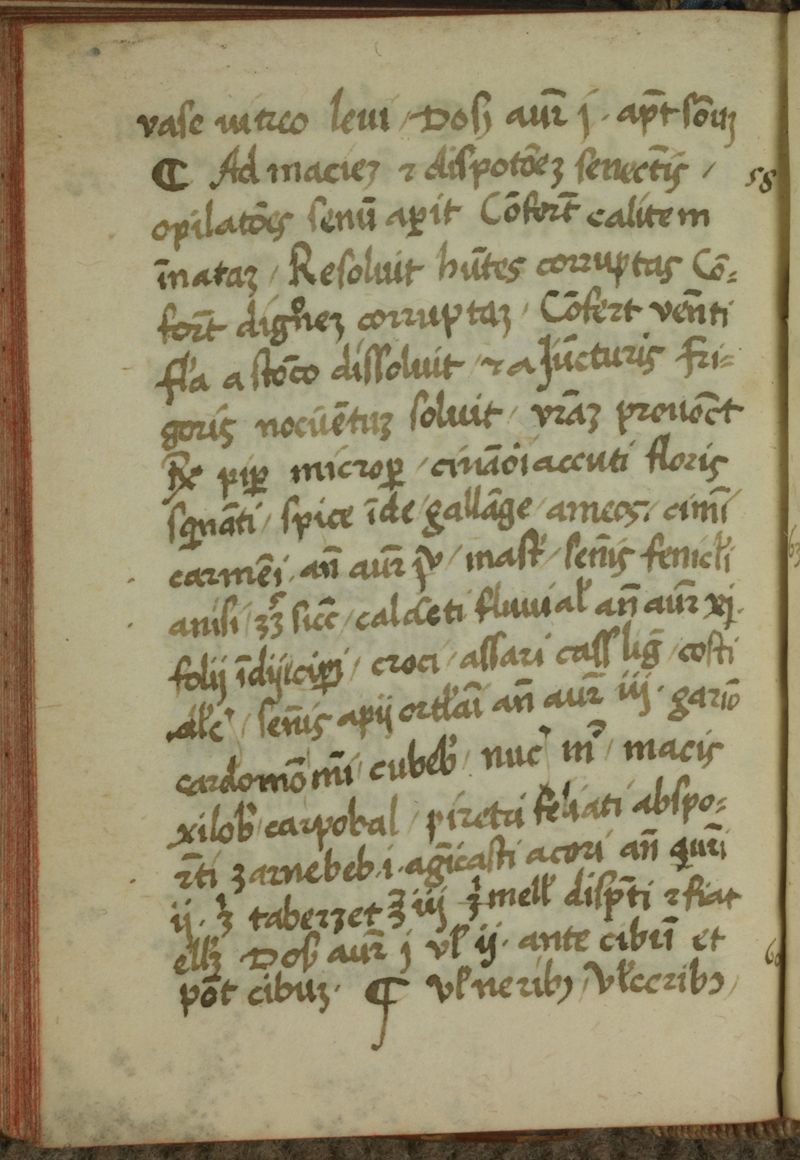 vase uitreo leui / Dosꝭ aur̄ j · ap̄t sōnuꝫ
¶ Ad macieꝫ ⁊ dispotōeꝫ senectīs / 58
opilatōes senū aꝑit Cōfort̄ calitem
īnataꝫ / Resoluit hūtes corruptas Cō-
fort̄ digōneꝫ corruptaꝫ / Cōfert vēnti
fl̄a a stōco dissoluit / ⁊ a Jūcturis fri-
goris nocūētuꝫ soluit / vrāꝫ prouoc̄t
℞ piꝑ microꝑ / cināōi accuti floris
sqnāti / spice īde / gallāge / ameos / cimī
carmēi an̄ aur̄ / mast̄ / sēnis fenicl̄i
anisi / ꝫꝫ sicc̄ / calaeti fluuial̄ an̄ aur̄ xj ·
folij īdij / ciꝑi / croci / assari cass̄ liḡ / costi
sēnis apij ortl̄aī an̄ aur̄ iij · gariō
cardomō mī / cubeb̄ / nuc̄ m̄ / macis
xilob̄ carpobal / piretri feliati abspo-
r̄ti ꝫarnebeb · i · agīcasti acori an̄
ij · taberꝫet ℥ iij mell̄ disp̄ti ⁊ fiat
ell̄ꝫ Dos̄ aur̄ j vl̄ ij · ante cibū et
pōt cibuꝫ · ¶ vl̄neribꝰ / vl̄ceribꝰ /
63
60